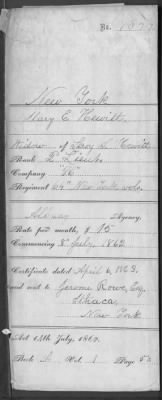 No. 1077
New York
Mary E. Hewitt,
Widow of Leroy L. Hewitt
Rank 2. Lieut.
Company "K"
Regiment 64" New York vols.
Albany Agency.
Rate per month, $ 15
Commencing 3" July, 1862
Certificate dated April 6, 1863,
and sent to Jerome Rowe, Esq
Ithaca,
New York
Act 14th July, 1862.
Book Vol. 1 Page